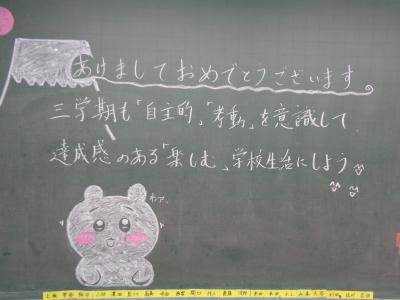 あけましておめでとうございます。
三学期も「自主的」「考動」を意識して、
達成感のある「楽しむ」学校生活にしよう
わァ、